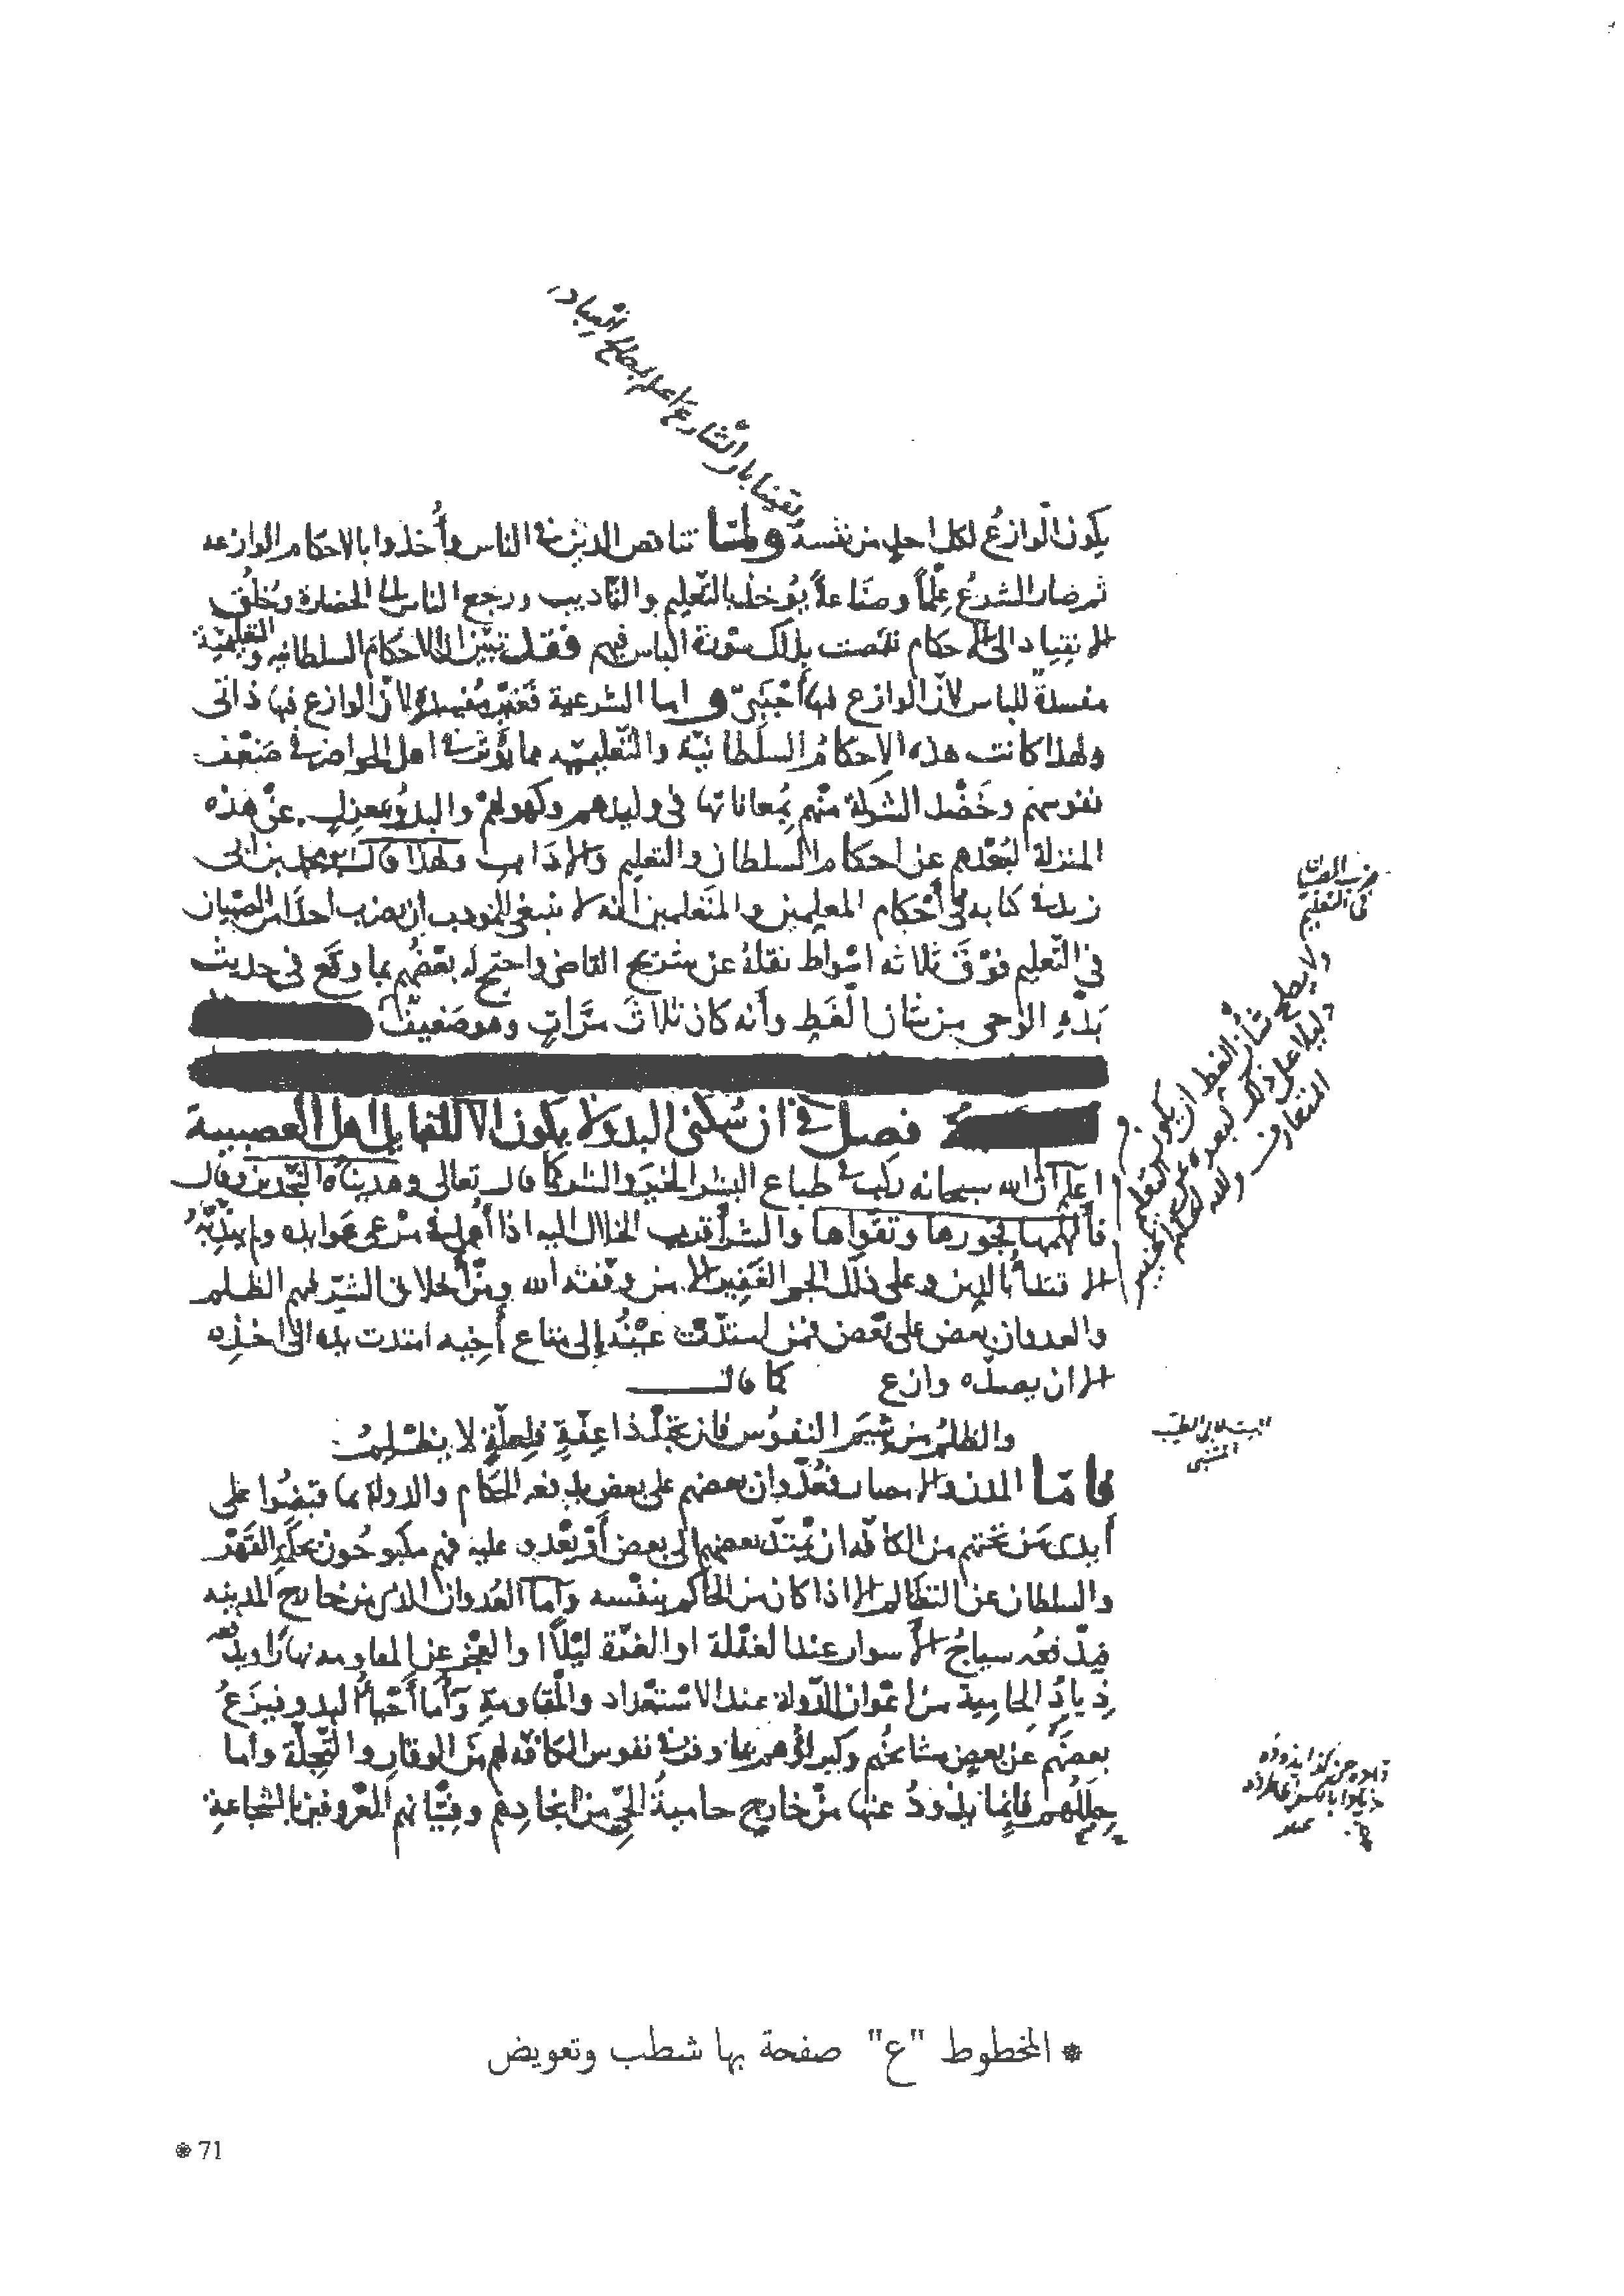 يقينا بأن الشارع اعلم بمصالح العباد
يكون الوازعُ لكل احدٍ من نفسه ولمّا تناقص الدين في الناس وأُخذوا بالاحكام الوازعه
ثم صار الشرعُ عِلْماً وصناعةً يُوخذ بالتّعليم والتّأديب ورجع الناس الى الحضارة وخُلُق
الانقياد الى الاحكام نقصت بذلك سَوْرَة الباس فيهم فقد تبيّن ان الاحكامَ السلطانيه والتعليميّة
مفسدةٌ للباس لانّ الوازع فيها أجْنَبيّ واما الشرعية فغير مُفسدة لانّ الوازع فيها ذاتى
ولهذا كانت هذه الاحكامُ السلطانيّة والتّعليميّه مما يُؤثر في اهل الحواضر في ضَعْف
نفوسهم وخَضْد الشوكة منْهم بِمُعاناتها في وليدهم وكهولهمْ والبدوُ بمعزلٍ عنْ هذه
المنزلة لبُعْدهم عن احكام السلطان والتعليم والاداب ولهذا قال محمد بن ابى
زيد في كتابه في أحْكام المعلمين والمتعلمين أنه لا ينبغى للمودب ان يضرب احدًا من الصّبيان
في التّعليم فوْقَ ثلاثه اسْواط نقلهُ عن شُريح القاضى واحتج له بعْضُهم بما وقع في حديث
بَدْءِ الوَحي مِن شَان الغَطِّ وأنه كان ثلاثَ مَرّاتٍ وهو ضَعيفٌ
ضرب الصبيان
في التعليم
ولا يصلح شأنُ الغط ان يكون
دليلا على ذلك لبعده عن التعليم
المتعارف والله الحكيم الخبير
فصل في ان سُكنى البدو لا يكون الا للقبايل اهل العصبية
اعلم أنّ الله سبحانه ركّب في طباع البشر الخيرَ والشر كما قال تعالى وهديناه النّجْدين وقال
فألهمها فجُورها وتقواها والشرّ أقرب الخلال اليه اذا أُهمل في مرْعى عوايده ولم يهذّبْهُ
الاقتداءُ بالدين وعلى ذلك الجم الغَفير الا من وفّقه الله ومنْ أخلاق الشرّ فيهم الظلم
والعدوان بعض على بَعْض فمن امتدّت عيْنُه إلى متاع أخِيه امتدت يده الى اخذِه
الا ان يصدّه وازع كما قال
والظلمُ من شِيَم النفوُس فان تجدْ ذا عِفّةٍ فلِعلّةٍ لا يظْلِمُ
البيت لابى الطيب
المتنبى
فامّا المدن والامصار فعُدْوان بعضهم على بعض يدفعه الحكام والدولة بما قبضُوا على
أيدى مَن تحْتهم من الكافّه ان يَمْتدّ بعضهم الى بعض أوْ يَعْدو عليه فهم مكبوحُون بحكَمةِ القَهْر
والسلطان عن التظالم الا اذا كان من الحاكم بنفْسه وأمّا العُدوان الذى من خارج المدينه
فيدْفعُه سياجُ الأسوار عند الغفْلة او الغرّة ليْلاً او العَجْز عن المقاومه نهارًا ويدْفعه
ذِيادُ الحامِية منْ اعْوان الدّولة عند الاسْتعْداد والمُقاومةِ وأمّا أحْياءُ البدو فيزَعُ
بعضَهُم عن بعضٍ مشايخُهم وكبراؤُهم بما وقر في نفوس الكافّه لهم من الوقار والتّجِلّة واما
حِلَلُهم فانما يذودُ عنها منْ خارج حاميةُ الحَيّ من أنجادِهم وفِتْيانهم المعْروفين بالشجاعةِ
❊ المخطوط "ع" صفحة بها شطب وتعويض
❊ 71